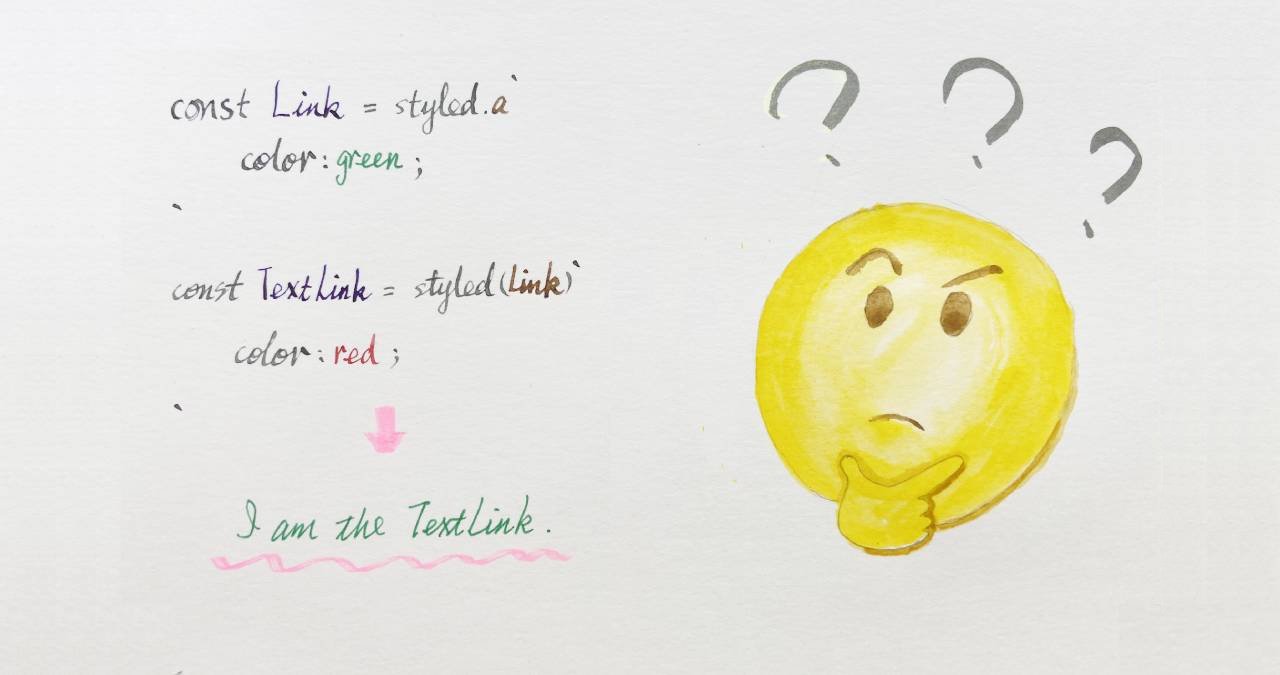 const Link = styled.a`
color: green;
`
const TextLink = styled(Link)`
color: red;
`
I am the TextLink.
? ? ?